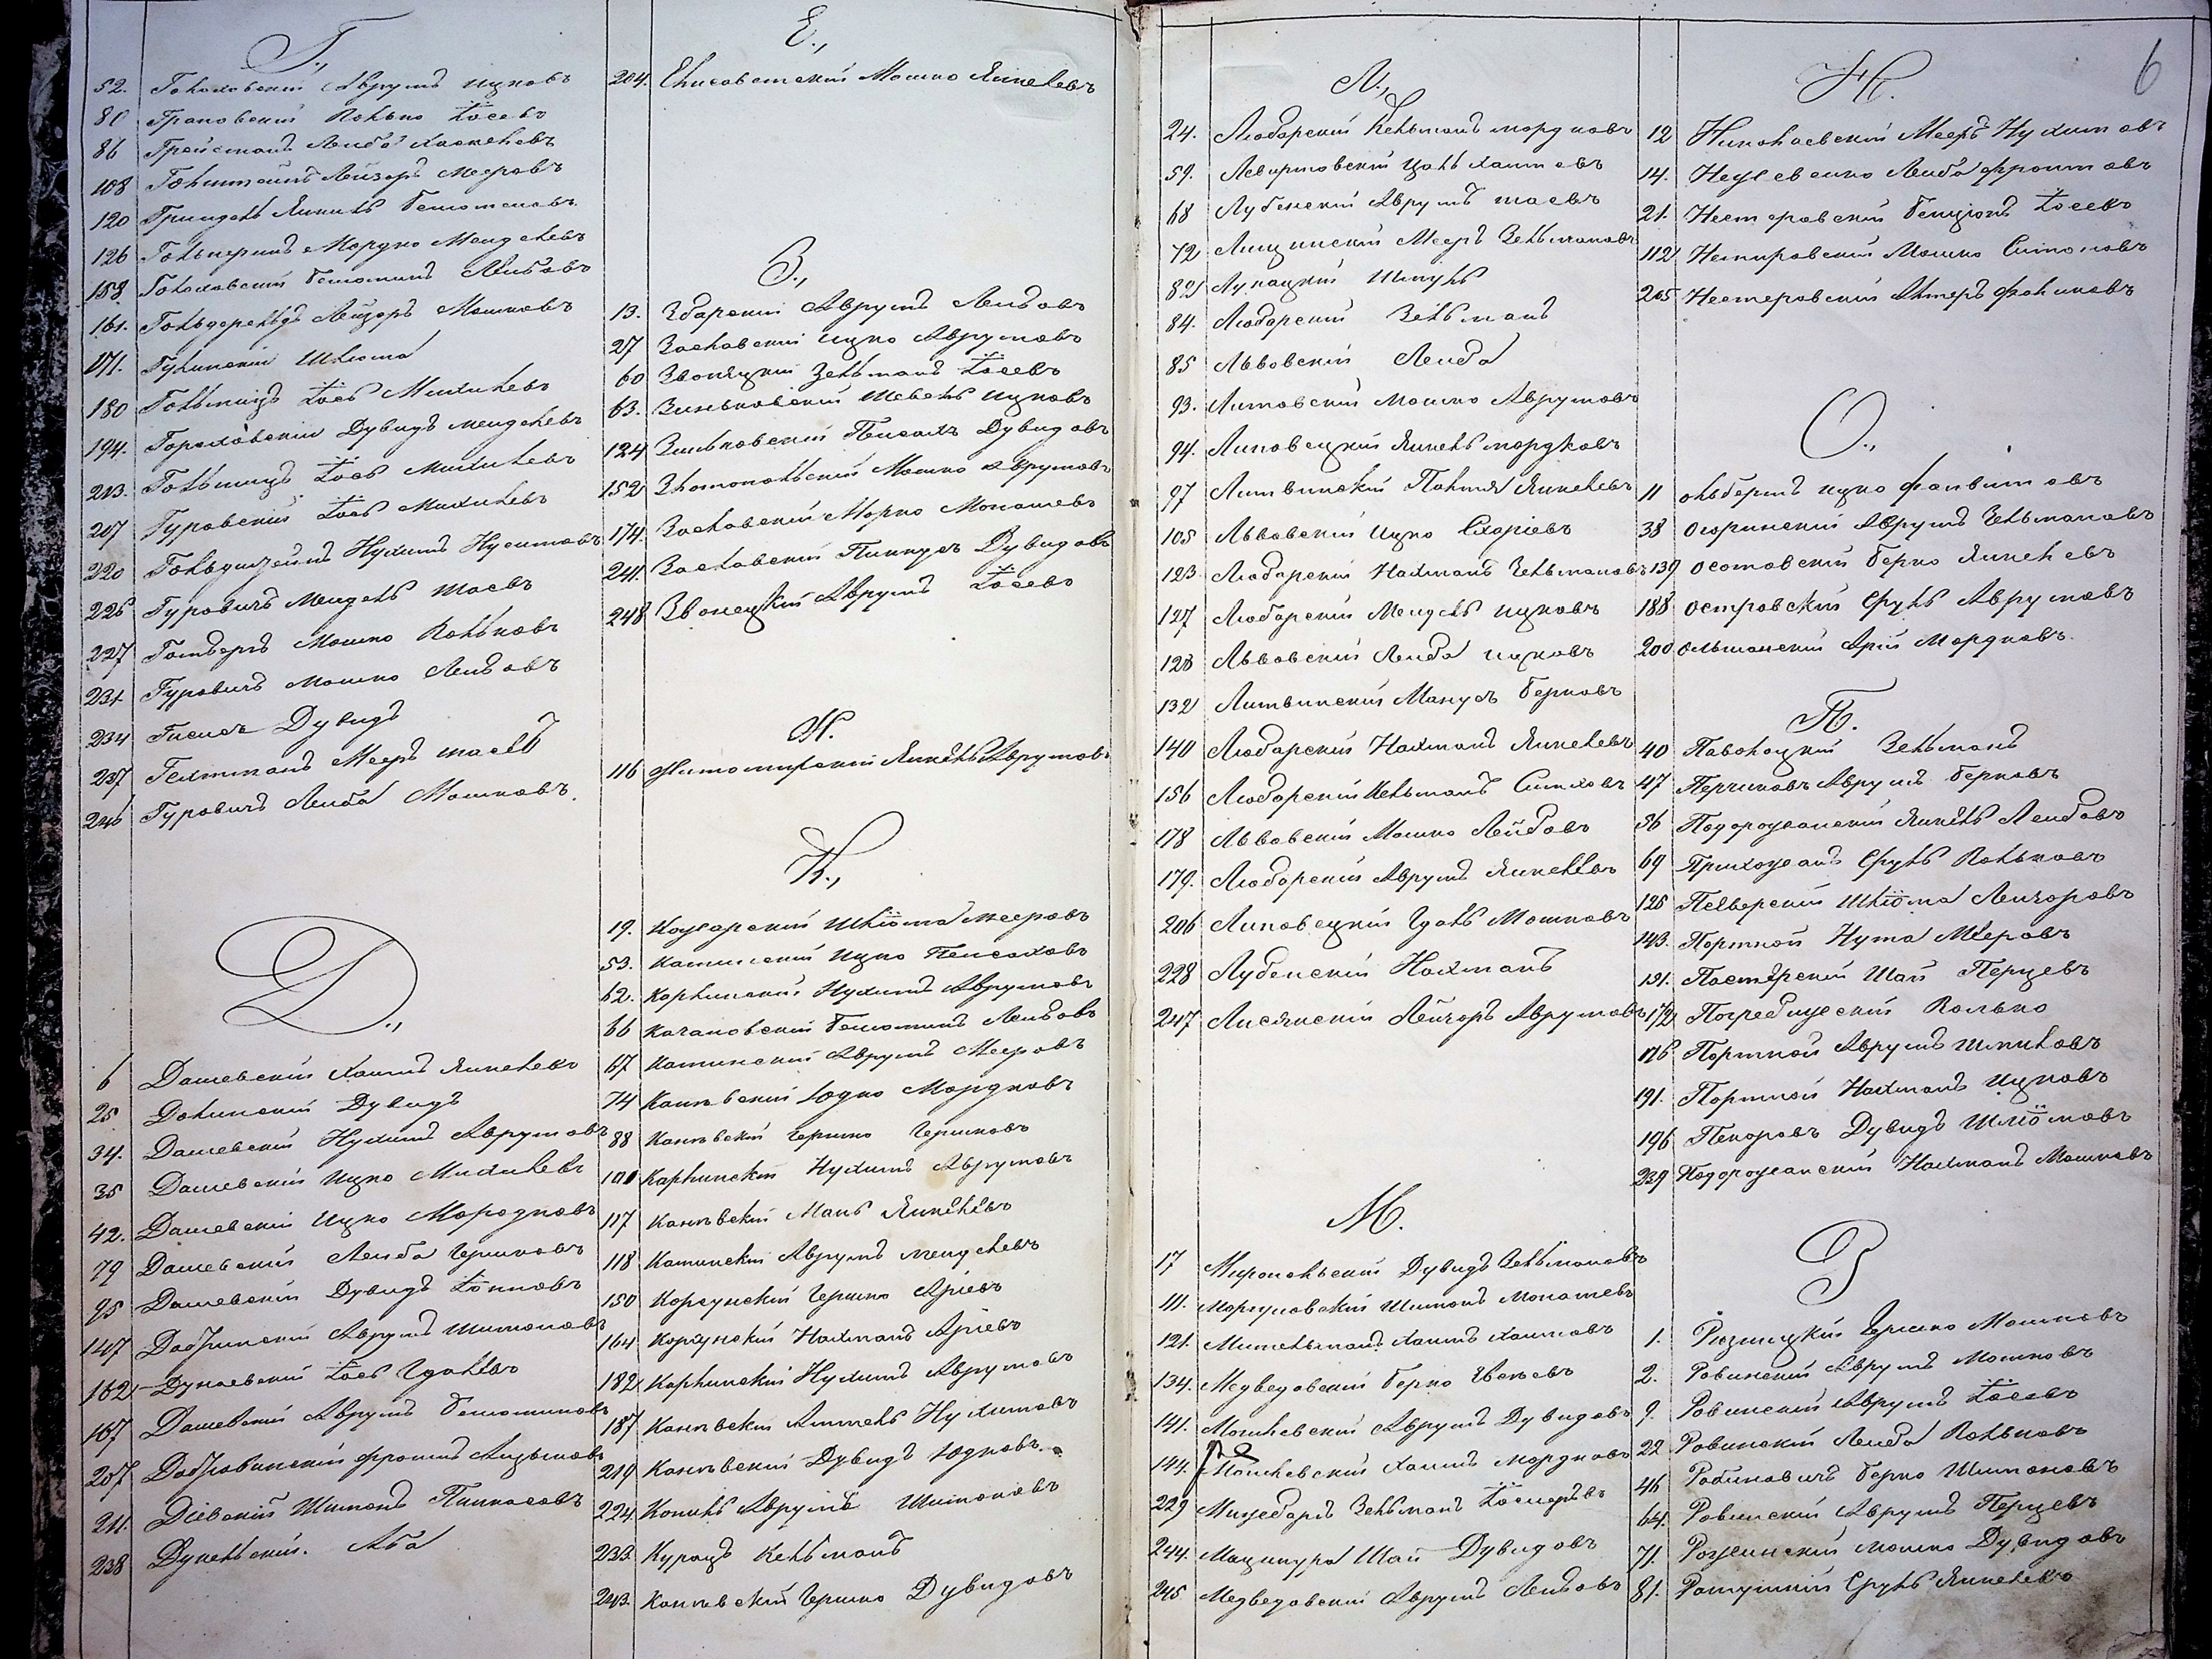 Г.,
52. Голоховский Аврумъ Ицковъ
80 Грановский Волько Іосевъ
86 Гройсманъ Лейба Хаскелевъ
108 Гольштейнъ Лейзоръ Мееровъ
120 Гриндель Янкель
126 Гольперинъ Мордко Менделевъ
158. Голоховский Беньоминъ Лейбовъ
161. Гольдорейхъ Лейзоръ Мошковъ
171. Гулинский Шліома
180 Гольмицъ Іось Михилевъ
194. Гороховский Дувидъ Менделевъ
213. Гольмицъ Іось Михилевъ
207 Гуровский Іось Михилевъ
220 Нухимъ
226 Гуровичъ Мендель Шаевъ
227 Мошко Вольковъ
231 Гуровичъ Мошко Лейбовъ
234 Дувидъ
237 Гехтманъ Мееръ Шаевъ
246 Гуровичъ Лейба Мошковъ.
Д.,
6 Дашевский Хаимъ Янкелевъ
25 Долинский Дувидъ
34. Дашевский Нухимъ Аврумовъ
35 Дашевский Ицко Михилевъ
42. Дашевский Ицко Мородковъ
79 Дашевский Лейба Гершковъ
95 Дашевский Дувидъ
147 Добринский Аврумъ Шимоновъ
162 Дунаевский Іось Гдалевъ
167 Дашевский Аврумъ Беньоминовъ
207 Добровинский Фроимъ
211. Діевский Шимонъ Пинкасовъ
238 Дукельский. Аба
Е.,
204. Елисаветский Мошко Янкелевъ
З.,
13. Збарский Аврумъ Лейбовъ
27 Заславский Ицко Аврумовъ
60 Звоницкий Зельманъ Іосевъ
63. Зиньковский Шевель Ицковъ
124 Зиньковский Пейсахъ Дувидовъ
152 Злотопольский Мошко Аврумовъ
174. Заславский Морко Монашевъ
241. Заславский Пинкусъ Дувидовъ
248 Звонецкий Аврумъ Іосевъ
Ж.
116 Житомирский Янкель Аврумовъ
К.,
19. Кожарский Шліома Мееровъ
53. Каминский Ицко Пейсаховъ
62. Карлинский Нухимъ Аврумовъ
66 Качановский Беньоминъ Лейбовъ
67 Каминский Аврумъ Мееровъ
74 Каневский Юдко Мордковъ
88 Каневский Гершко Гершковъ
101 Карлинский Нухимъ Аврумовъ
117 Каневский Мань Янкелевъ
118 Каминский Аврумъ Менделевъ
150 Корсунский Гершко Аріевъ
164 Корсунский Нахманъ Аріевъ
182 Карлинский Нухимъ Аврумовъ
187 Каневский Аншель Нухимовъ
219 Каневский Дувидъ Юдковъ.
224. Копиль Аврумъ Шимоновъ
233. Курацъ Кельманъ
243. Каневский Гершко Дувидовъ
6
Л.,
24. Любарский Кельманъ Мордковъ
59. Левертовский Цаль Хаимовъ
68 Лубенский Аврумъ Шаевъ
72 Лищинский Мееръ Зельмановъ
82 Лукацкий Шмуль
84. Любарский Зельманъ
85 Львовский Лейба
93. Литовский Мошко Аврумовъ
94. Липовецкий Янкель Мордковъ
97 Литвинский Пальтя Янкелевъ
105 Львовский Ицко Схаріевъ
123. Любарский Нахманъ Зельмановъ
127 Любарский Мендель Ицковъ
128 Львовский Лейба Ицковъ
132 Литвинский Манусъ Берковъ
140 Любарский Нахманъ Янкелевъ
156 Любарский Кельманъ Симховъ
178 Львовский Мошко Лейбовъ
179. Любарский Аврумъ Янкелевъ
206 Липовецкий Гдаль Мошковъ
228 Лубенский Нахманъ
247 Лисянский Лейзоръ Аврумовъ
М.
17 Миропольский Дувидъ Зельмановъ
111. Моргуновский Шимонъ Монашевъ
121. Мительманъ Хаимъ Хаимовъ
134. Медведовский Берко
141. Могилевский Аврумъ Дувидовъ
144. Могилевский Хаимъ Мордковъ
229 Зельманъ
244. Маципура Шаи Дувидовъ
245 Медведовский Аврумъ Лейбовъ
Н.
12 Николаевский Мееръ Нухимовъ
14. Лейба Фроимовъ
21. Нестеровский Бенціонъ Іосевъ
112 Немировский Мошко Симоновъ
205 Нестеровский Альтеръ Фоликовъ
О.,
11 Ольбергъ Ицко Фоивишовъ
38 Огоринский Аврумъ Зельмановъ
139 Осотовский Берко Янкелевъ
188 Островский Сруль Аврумовъ
200 Ольшанский Арій Мордковъ.
П.
40 Паволоцкий Зельманъ
47 Перчиковъ Аврумъ Берковъ
56 Подорожанский Янкель Лейбовъ
69 Прихожанъ Сруль Вольковъ
125 Шліома Лейзоровъ
143. Портной Нута Мееровъ
151. Шаи Перцевъ
172 Погребижский Волько
176 Портной Аврумъ Шмилевъ
191. Портной Нахманъ Ицковъ
196 Пекоровъ Дувидъ Шліомовъ
239 Подорожанский Нахманъ Мошковъ
Р
1. Ружицкий Гершко Мошковъ
2. Ровинский Аврумъ Мошковъ
9. Ровинский Аврумъ Іосевъ
22 Ровинский Лейба Вольковъ
46 Рабиновичъ Берко Шимоновъ
64. Ровинский Аврумъ Перцевъ
71. Рожинский Мошко Дувидовъ
81. Ратушный Сруль Янкелевъ